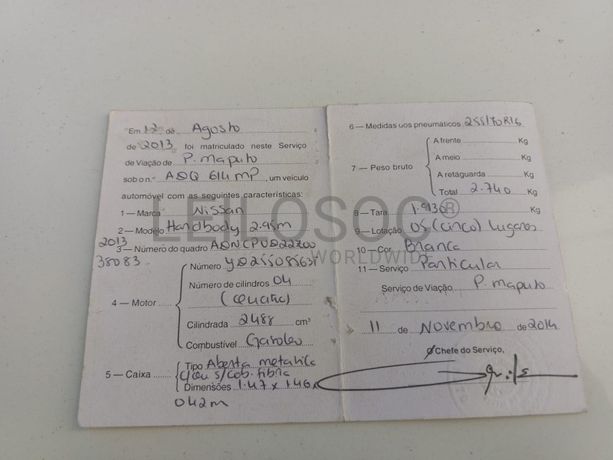 Em 12 de Agosto
de 2013 foi matriculado neste Serviço
de Viação de P. maputo
sob o n.º ADQ 614 MP, um veículo
automóvel com as seguintes características:
1 — Marca Nissan
2 — Modelo Hardbody 2.45m
2013
3 — Número do quadro ADNCPUD22700
38083
Número
Número de cilindros 04
4 — Motor
(quatro)
Cilindrada 2488 cm³
Combustível Gasoleo
Tipo Aberta metalica
5 — Caixa
c/ou s/cob. fibra
Dimensões 1.47 x 1.46 x
042m
6 — Medidas dos pneumáticos 255/70R16
A frente Kg
A meio Kg
7 — Peso bruto
A retaguarda Kg
Total 2.740 Kg
8 — Tara 1.930
9 — Lotação 05 (cinco) lugares
10 — Cor Branca
11 — Serviço Particular
Serviço de Viação P. maputo
11 de Novembro de 2014
O Chefe do Serviço,
LEILOSOC®
WORLDWIDE